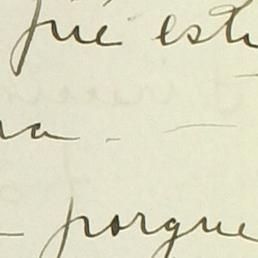 que est
na -
- porque